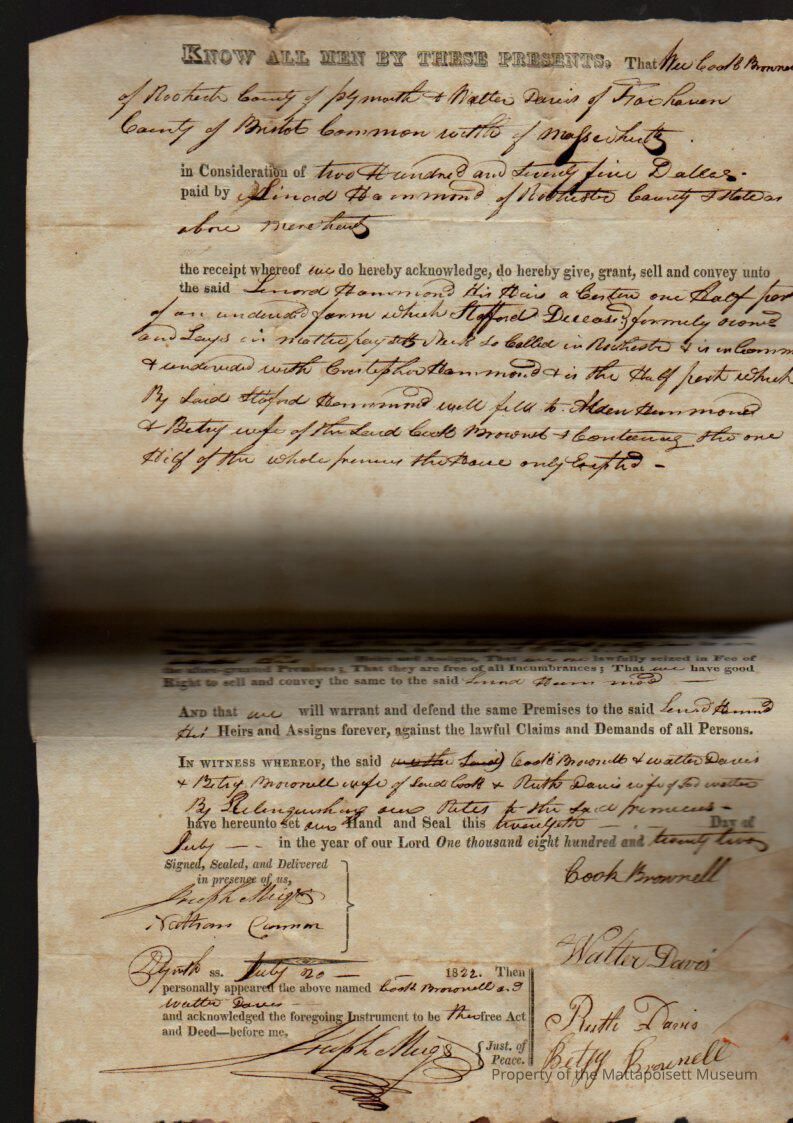 KNOW ALL MEN BY THESE PRESENTS, That We Cook Brownel
of Rochester County of plymouth & Walter Davis of Fairhaven
County of Bristol Common wilth of Massechusetts
in Consideration of two Hundred and seventy five Dallas
paid by Linord Hammond of Rochester County & State as
above Merchant
the receipt whereof we do hereby acknowledge, do hereby give, grant, sell and convey unto
the said Linord Hammond His Heirs a Certin one Half part
of an undevided farm which Stafford Deceased formely owned
and Lays in Mattepoysett Neck so Called in Rochester & is in Comm
& undevided with Cristopher Hammond & is the Half part which
By Said Staford Hammond will fell to Alden Hammond
& Betsy wife of the Said Cook Brownel & Contening the one
Half of the whole premises the House only Exepted -
lawfully seized in Fee of
the afore-granted Premises; That they are free of all Incumbrances; That we have good
Right to sell and convey the same to the said Linord Hammond
AND that we will warrant and defend the same Premises to the said Linord Hammond
His Heirs and Assigns forever, against the lawful Claims and Demands of all Persons.
IN WITNESS WHEREOF, the said we the Said Cook Brownell & walter Davis
& Betsy Brownell wife of Said Cook & Ruth Davis wife of Sd walter
By Relinquishing our Rites to the said premises -
have hereunto set our Hand and Seal this twentyeth Day of
July in the year of our Lord One thousand eight hundred and twenty two
Signed, Sealed, and Delivered
in presence of us,
Joseph Meigs
Nathan Cannon
Cook Brownell
Walter Davis
Ruth Davis
Betsy Brownell
Plymth ss. July 20 1822. Then
personally appeared the above named Cook Brownell and
Walter Davis
and acknowledged the foregoing Instrument to be their free Act
and Deed—before me,
Joseph Meigs Just. of Peace.
Property of the Mattapoisett Museum